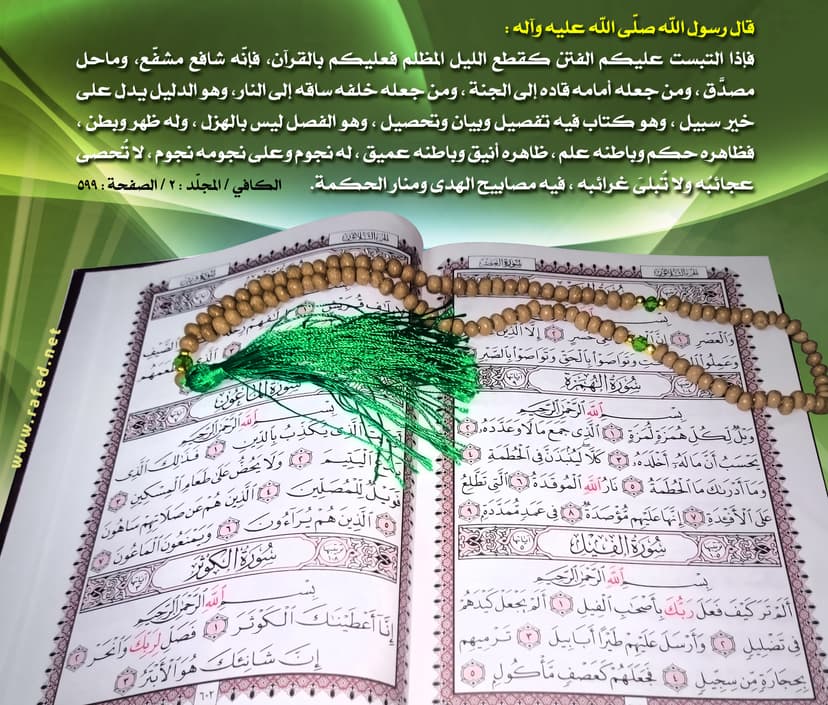 قال رسول الله صلّى الله عليه وآله :
فإذا التبست عليكم الفتن كقطع الليل المظلم فعليكم بالقرآن، فإنّه شافع مشفّع، وماحل
مصدَّق ، ومن جعله أمامه قاده إلى الجنة ، ومن جعله خلفه ساقه إلى النار، وهو الدليل يدل على
خير سبيل ، وهو كتاب فيه تفصيل وبيان وتحصيل ، وهو الفصل ليس بالهزل ، وله ظهر وبطن ،
فظاهره حكم وباطنه علم ، ظاهره أنيق وباطنه عميق ، له نجوم وعلى نجومه نجوم ، لا تُحصى
عجائبُه ولا تُبلىَ غرائبه ، فيه مصابيح الهدى ومنار الحكمة. الكافي / المجلّد : ٢ / الصفحة : ٥٩٩
الجزء الثلاثون سورة العصر
وَالْعَصْرِ ١ إِنَّ خُسْرٍ ٢ إِلَّا الَّذِينَ
وَعَمِلُوا وَتَوَاصَوْا بِالْحَقِّ وَتَوَاصَوْا بِالصَّبْرِ
سُورَةُ الْهُمَزَةِ
بِسْمِ اللَّهِ الرَّحْمَٰنِ الرَّحِيمِ
وَيْلٌ لِكُلِّ هُمَزَةٍ لُمَزَةٍ ١ الَّذِي جَمَعَ مَالًا وَعَدَّدَهُ ٢
يَحْسَبُ أَنَّ مَالَهُ أَخْلَدَهُ ٣ كَلَّا لَيُنْبَذَنَّ فِي الْحُطَمَةِ ٤
وَمَا أَدْرَاكَ مَا الْحُطَمَةُ ٥ نَارُ اللَّهِ الْمُوقَدَةُ ٦ الَّتِي تَطَّلِعُ
عَلَى الْأَفْئِدَةِ ٧ إِنَّهَا عَلَيْهِمْ مُؤْصَدَةٌ ٨ فِي عَمَدٍ مُمَدَّدَةٍ ٩
سُورَةُ الْفِيلِ
بِسْمِ اللَّهِ الرَّحْمَٰنِ الرَّحِيمِ
أَلَمْ تَرَ كَيْفَ فَعَلَ رَبُّكَ بِأَصْحَابِ الْفِيلِ ١ أَلَمْ يَجْعَلْ كَيْدَهُمْ
فِي تَضْلِيلٍ ٢ وَأَرْسَلَ عَلَيْهِمْ طَيْرًا أَبَابِيلَ ٣ تَرْمِيهِمْ
بِحِجَارَةٍ مِنْ سِجِّيلٍ ٤ فَجَعَلَهُمْ كَعَصْفٍ مَأْكُولٍ ٥
الجزء الثلاثون
سُورَةُ الْمَاعُونِ
بِسْمِ اللَّهِ الرَّحْمَٰنِ الرَّحِيمِ
الَّذِي يُكَذِّبُ بِالدِّينِ ١ فَذَٰلِكَ الَّذِي
الْيَتِيمَ ٢ وَلَا يَحُضُّ عَلَىٰ طَعَامِ الْمِسْكِينِ ٣
فَوَيْلٌ لِلْمُصَلِّينَ ٤ الَّذِينَ هُمْ عَنْ صَلَاتِهِمْ سَاهُونَ
٥ الَّذِينَ هُمْ يُرَاءُونَ ٦ وَيَمْنَعُونَ الْمَاعُونَ ٧
سُورَةُ الْكَوْثَرِ
بِسْمِ اللَّهِ الرَّحْمَٰنِ الرَّحِيمِ
إِنَّا أَعْطَيْنَاكَ الْكَوْثَرَ ١ فَصَلِّ لِرَبِّكَ وَانْحَرْ ٢
إِنَّ شَانِئَكَ هُوَ الْأَبْتَرُ ٣
٦٠٢
www.rafed.net